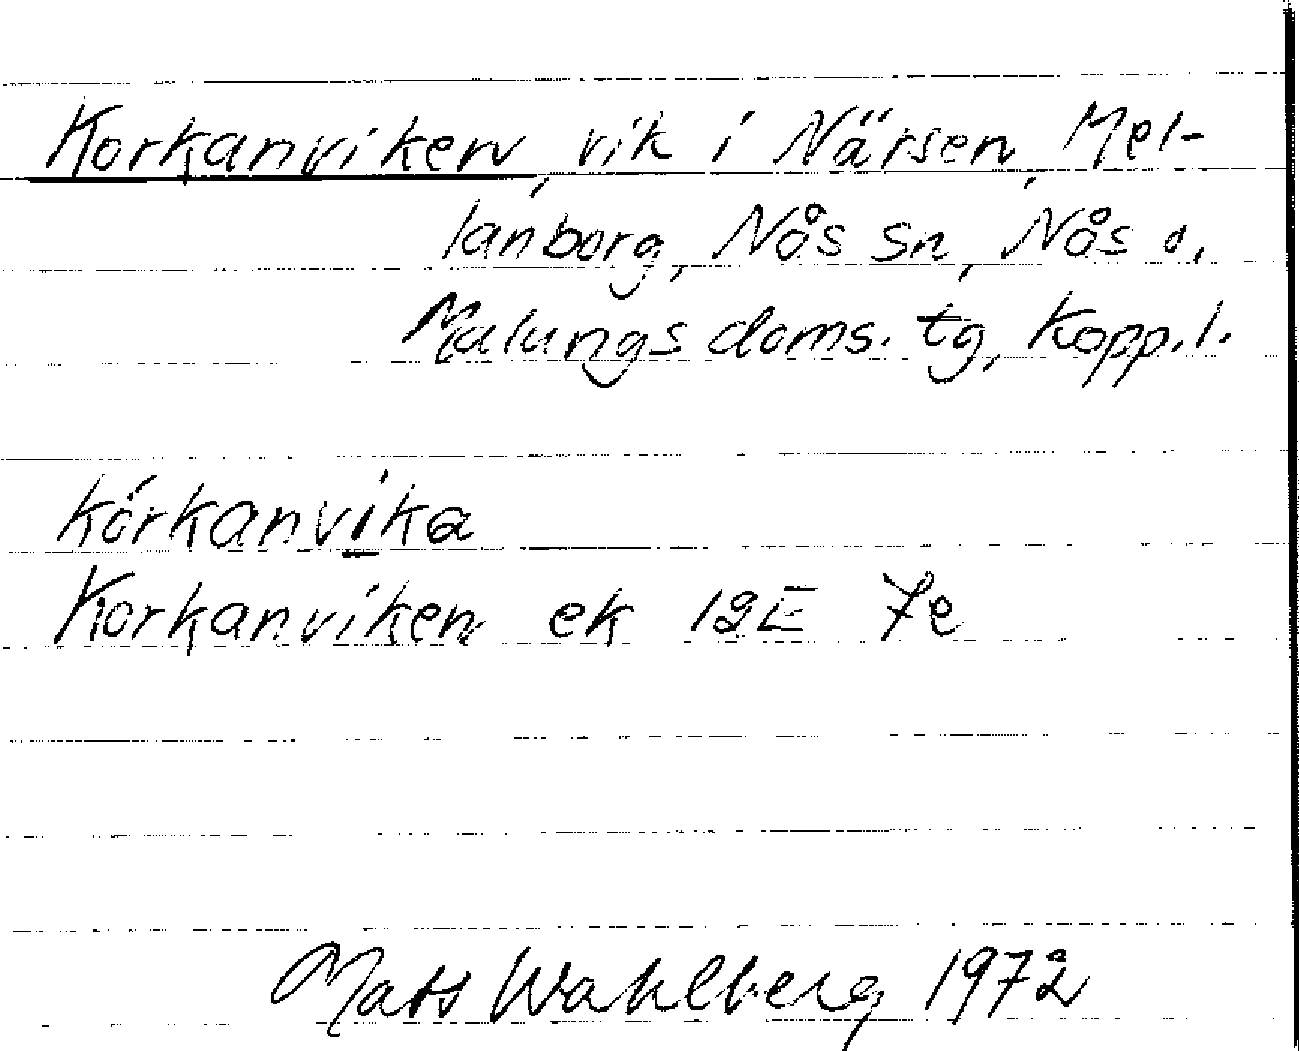 Korkanviken, vik i Närsen, Mel-
lanborg, Nås sn, Nås o.
Malungs doms. tg, Kopp.l.
kórkanvika
Korkanviken ek 12E 7e
Mats Wahlberg 1972